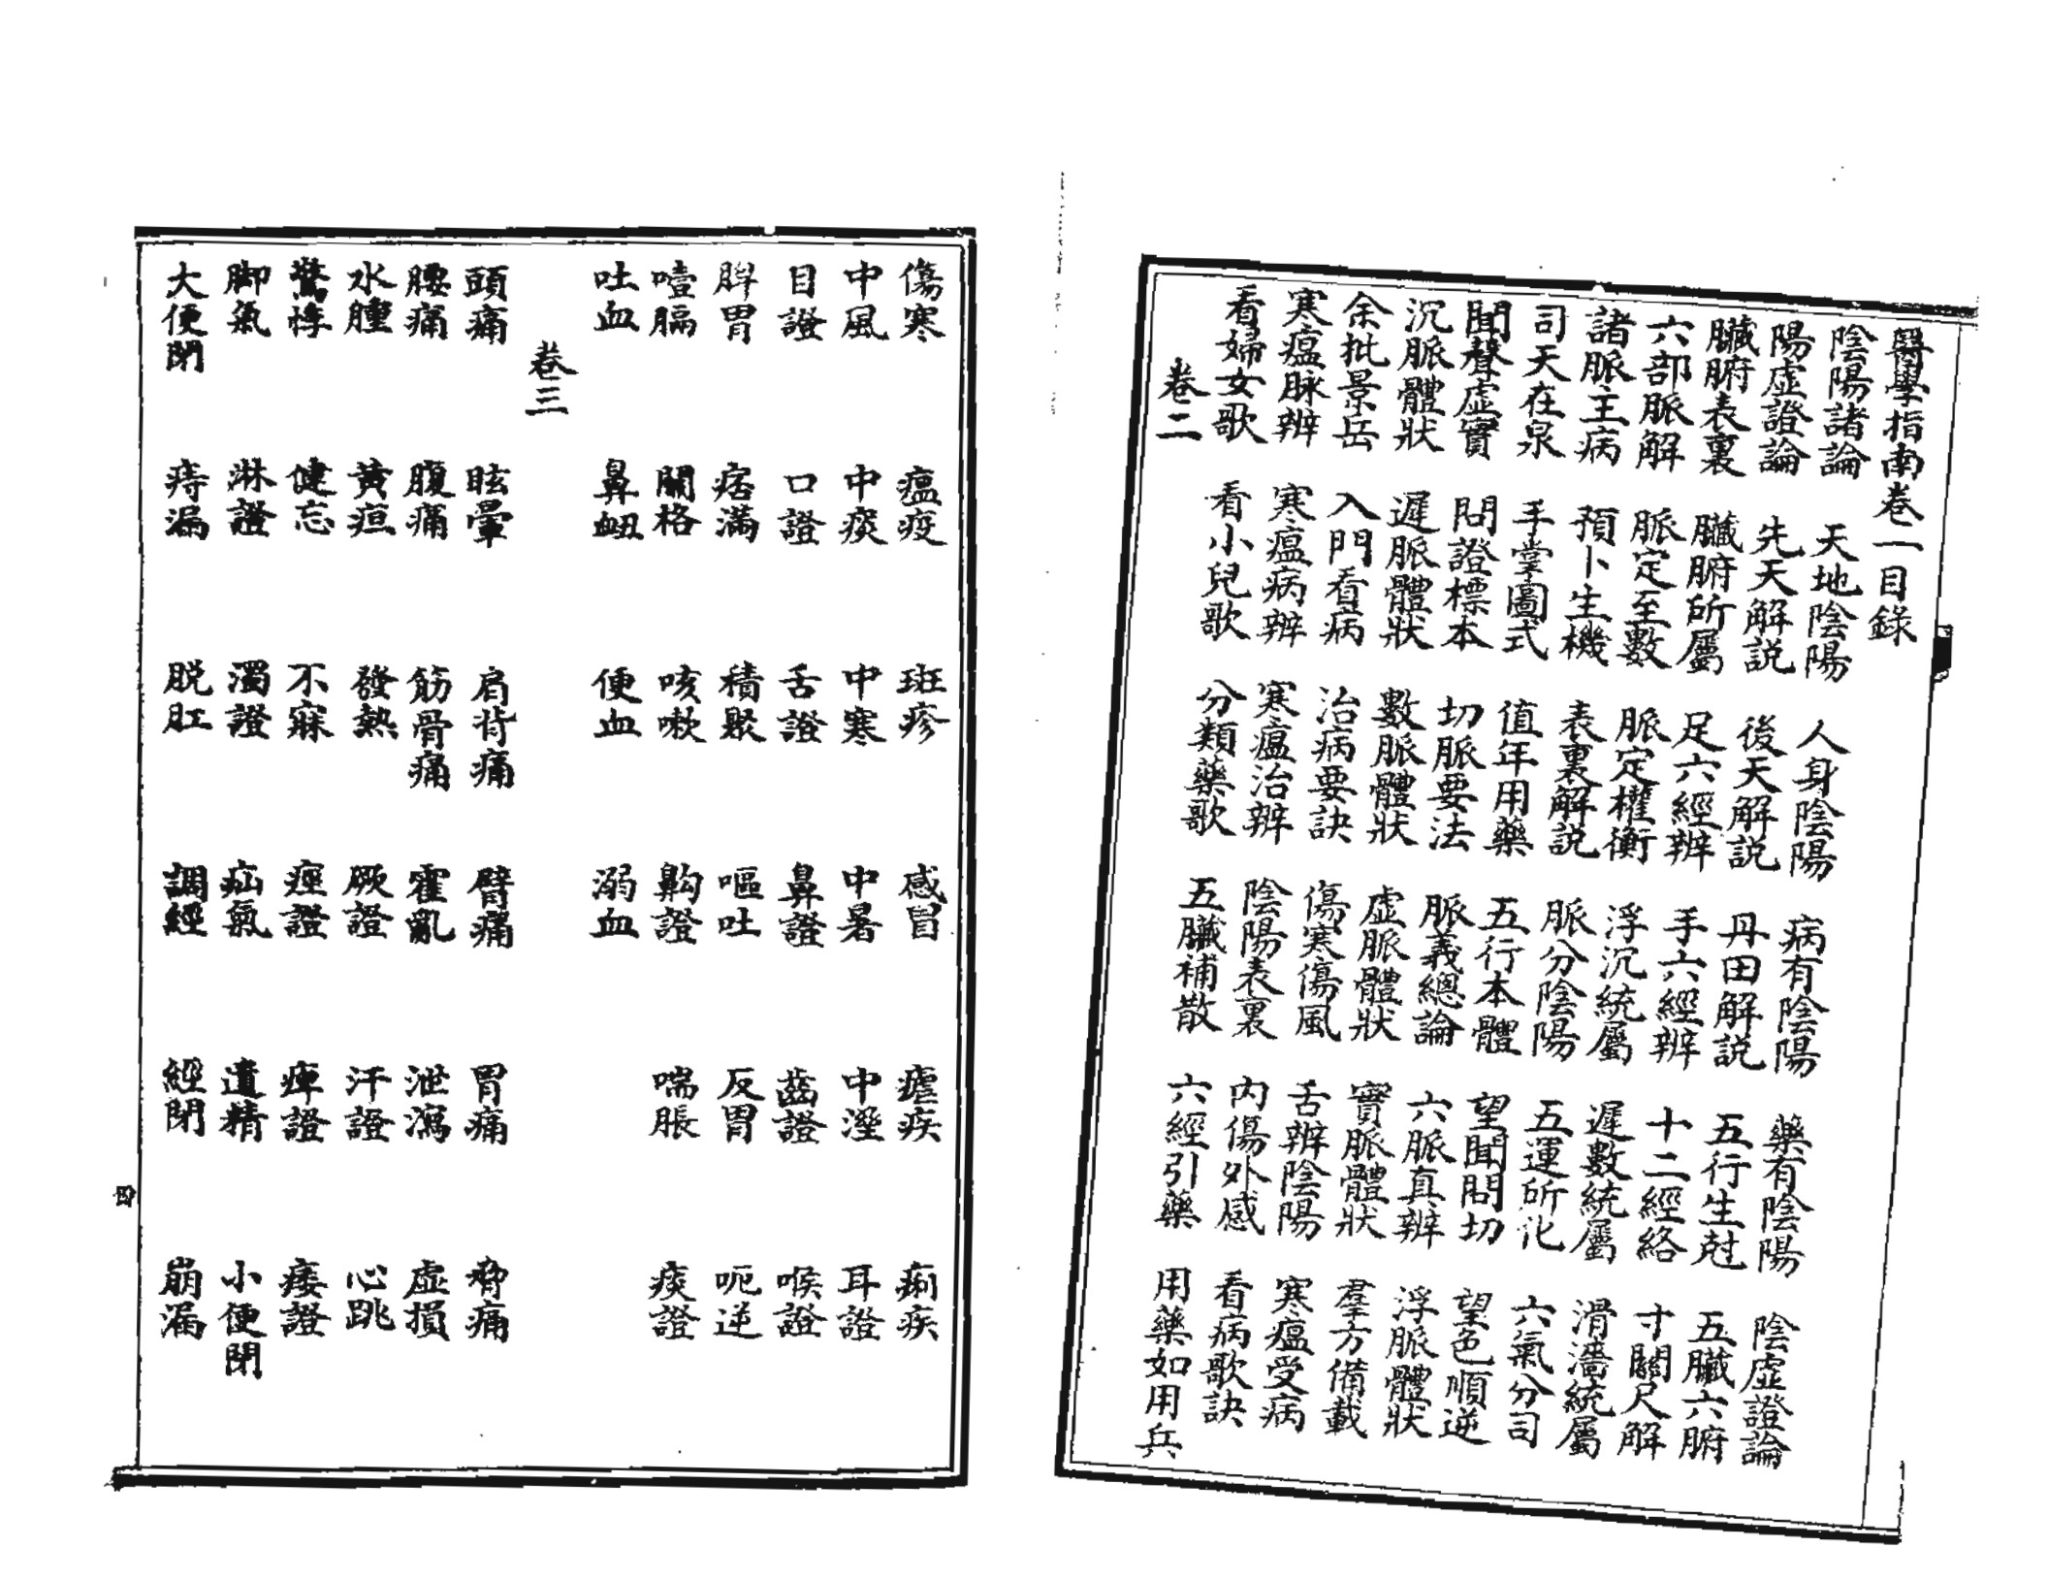 醫學指南卷一目錄
陰陽諸論 天地陰陽 人身陰陽 病有陰陽 藥有陰陽 陰虛證論
陽虛證論 先天解説 後天解説 丹田解説 五行生尅 五臟六腑
臟腑表裏 臟腑所屬 足六經辨 手六經辨 十二經絡 寸關尺解
六部脈解 脈定至數 脈定權衡 浮沉統屬 遲數統屬 滑濇統屬
諸脈主病 預卜生機 表裏解説 脈分陰陽 五運所化 六氣分司
司天在泉 手掌圖式 值年用藥 五行本體 望聞問切 望色順逆
聞聲虛實 問證標本 切脈要法 脈義總論 六脈真辨 浮脈體狀
沉脈體狀 遲脈體狀 數脈體狀 虛脈體狀 實脈體狀 羣方備載
余批景岳 入門看病 治病要訣 傷寒傷風 舌辨陰陽 寒瘟受病
寒瘟脉辨 寒瘟病辨 寒瘟治辨 陰陽表裏 內傷外感 看病歌訣
看婦女歌 看小兒歌 分類藥歌 五臟補散 六經引藥 用藥如用兵
卷二
傷寒 瘟疫 斑疹 感冒 瘧疾 痢疾
中風 中痰 中寒 中暑 中溼 耳證
目證 口證 舌證 鼻證 齒證 喉證
脾胃 痞滿 積聚 嘔吐 反胃 呃逆
噎膈 關格 咳嗽 齁證 喘脹 痰證
吐血 鼻衄 便血 溺血
卷三
頭痛 眩暈 肩背痛 臂痛 胃痛 脅痛
腰痛 腹痛 筋骨痛 霍亂 泄瀉 虛損
水腫 黃疸 發熱 厥證 汗證 心跳
驚悸 健忘 不寐 痙證 痺證 痿證
脚氣 淋證 濁證 疝氣 遺精 小便閉
大便閉 痔漏 脱肛 調經 經閉 崩漏
四